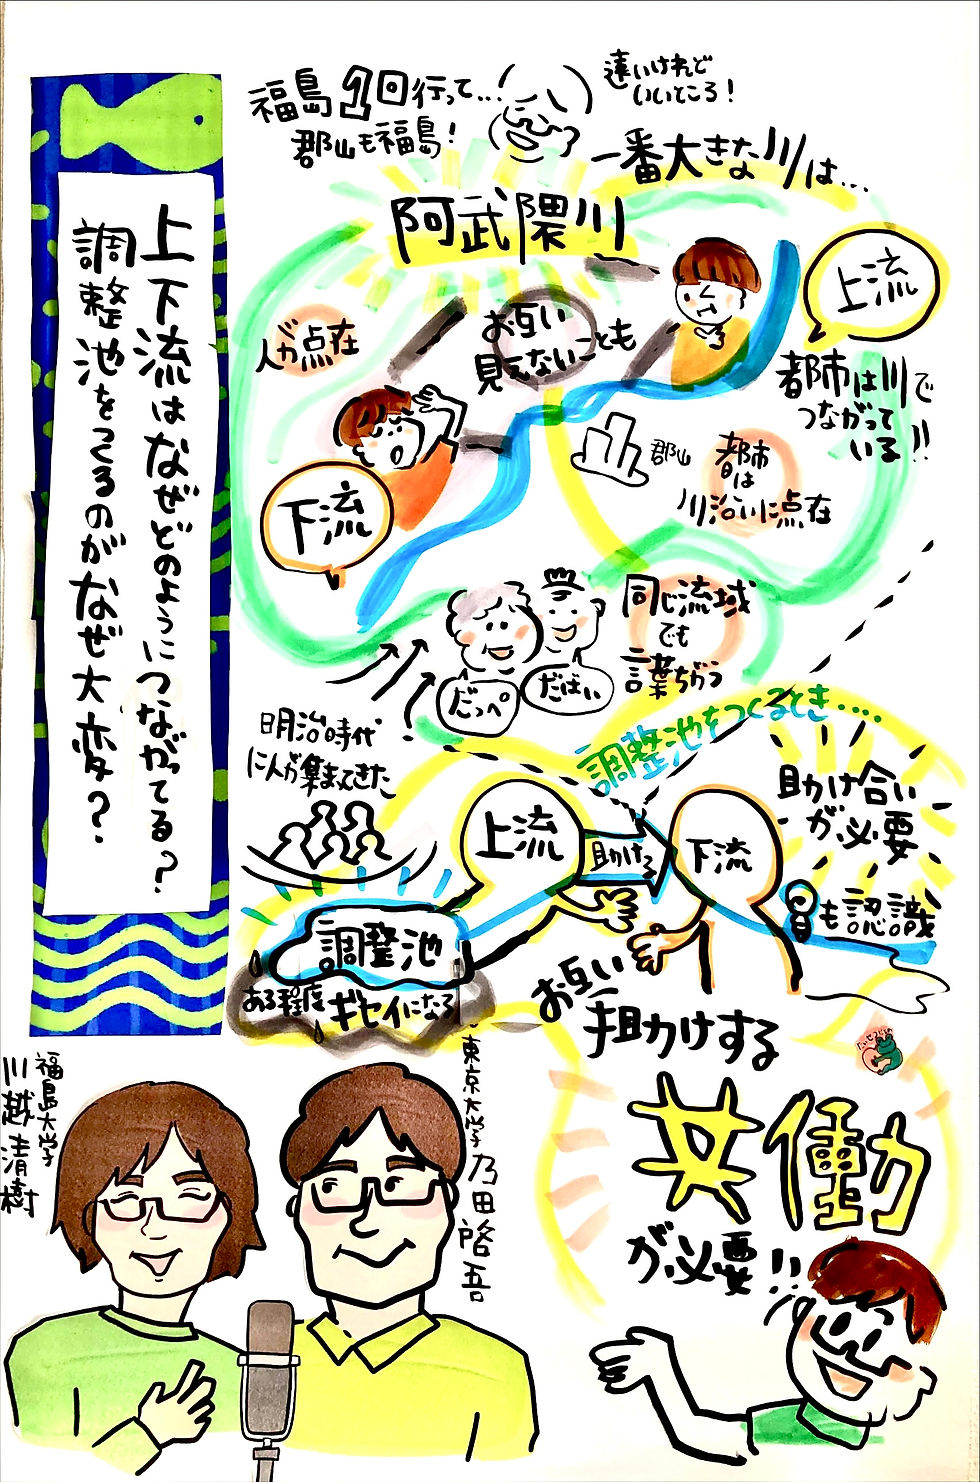 上下流はなぜどのようにつながってる?
調整池をつくるのがなぜ大変?
福島1回行って...
郡山も福島!
遠いけれど
いいところ!
一番大きな川は...
阿武隈川
上流
人が点在
お互い
見えないことも
都市は川で
つながって
いる!!
郡山
都市
は
川沿いに点在
下流
同じ流域
でも
言葉ちがう
だっぺ
だばい
明治時代
に人が集まってきた
調整池をつくるとき....
上流
助ける
下流
助け合い
が必要
も認識
調整池
ある程度
ギセイになる
お互い
手助けする
共働
が必要!!
福島大学
川越清樹
東京大学
乃田啓吾